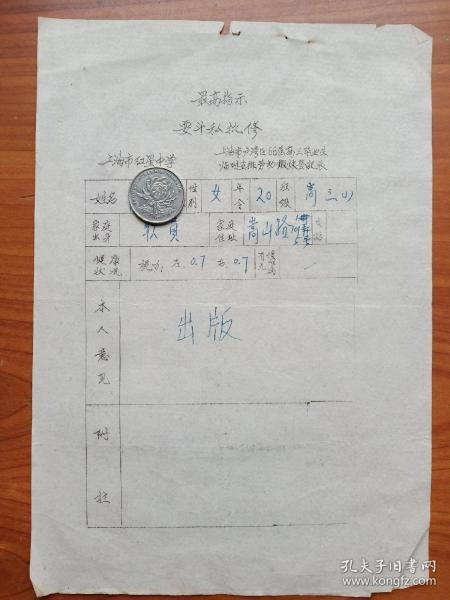 最高指示
要斗私批修
上海市卢湾区66届高三毕业生
上海市红星中学
临时安排劳动 登记表
姓名 性别 女 年令 20 班级 高三(1)
家庭出身 职员 家庭住址 嵩山路
健康状况 视力:左:0.7 右:0.7 有无慢性病 /
本人意见
出版
附注
孔夫子旧书网
www.kongfz.com